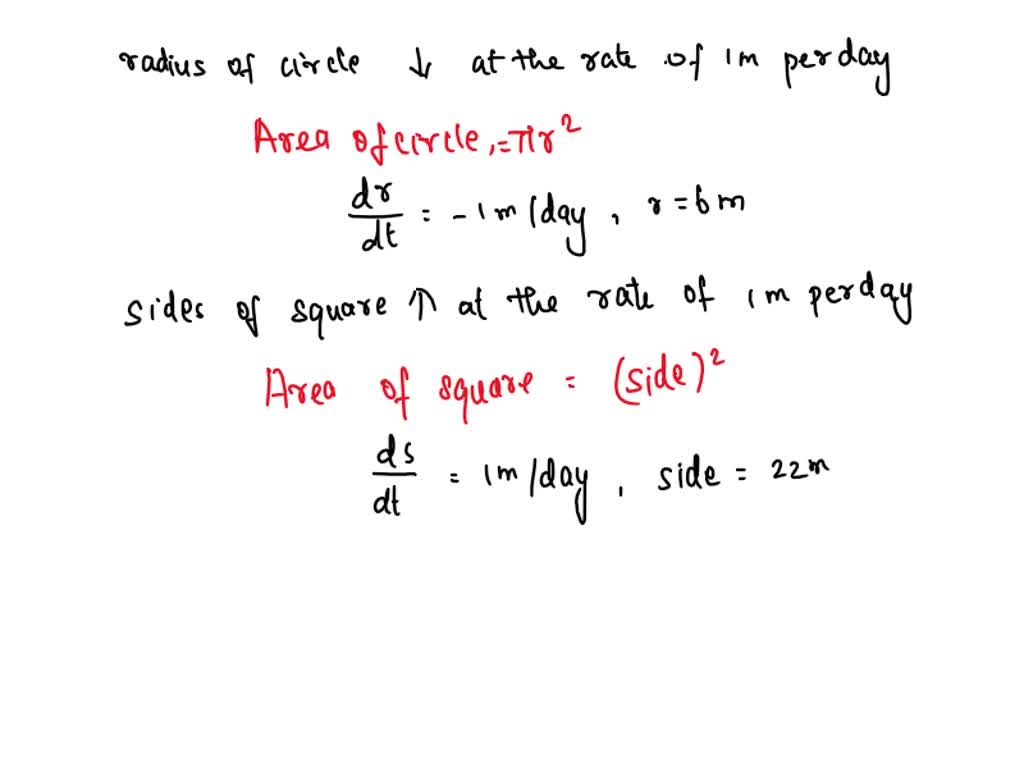 radius of circle ↓ at the rate of 1m per day
Area of circle, = πr²
dr/dt = -1m/day, r = 6m
sides of square ↑ at the rate of 1m per day
Area of square = (side)²
ds/dt = 1m/day, side = 22m